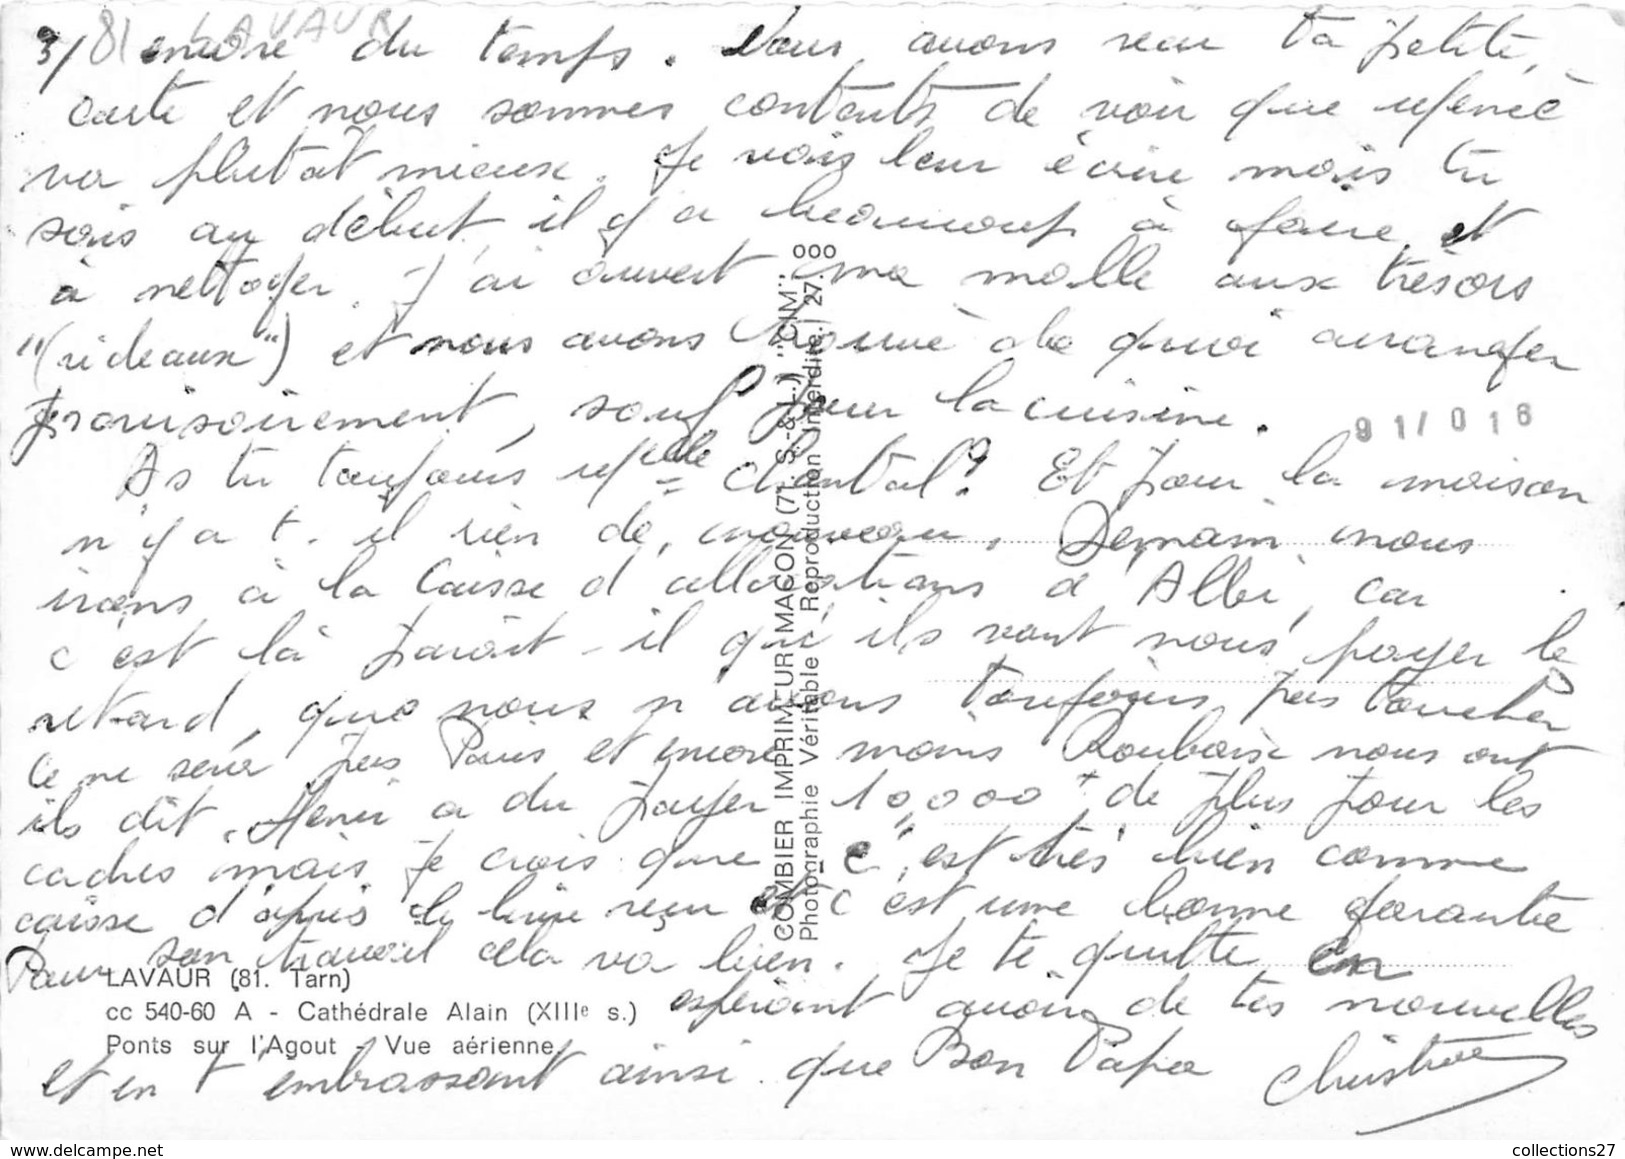 81 LAVAUR
3/ encore du temps. Nous avons reçu ta petite
carte et nous sommes contents de voir que
va plutôt mieux. Je vais leur écrire mais tu
sais au début, il y a beaucoup à faire, et
à nettoyer. J'ai ouvert ma malle aux trésors
"(rideaux") et nous avons trouvé de quoi arranger
provisoirement, sauf pour la cuisine.
91/016
As tu toujours Chantal? Et pour la maison
n'y a t-il rien de nouveau. Demain nous
irons à la Caisse d'allocations d'Albi, car
c'est là parait-il qu'ils vont nous payer le
retard, que nous n'avons toujours pas toucher
Ce ne sera pas Paris et encore moins Roubaix nous ont
ils dit. Henri a du payer 10,000 de plus pour les
cadres mais je crois que c'est très bien comme
caisse d'après le livre reçu et c'est une bonne garantie
Pour son travail cela va bien. Je te quitte, en
espérant avoir de tes nouvelles
et en t'embrassant ainsi que Bon Papa
Christine
COMBIER IMPRIMEUR MACON (71. S.-&-L.) "CIM"
Photographie Véritable Reproduction Interdite. 27.000
LAVAUR (81. Tarn)
cc 540-60 A - Cathédrale Alain (XIIIe s.)
Ponts sur l'Agout - Vue aérienne
collections27